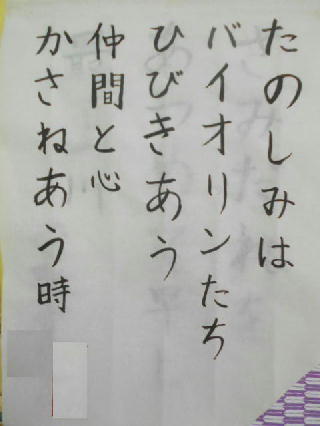 たのしみは
バイオリンたち
ひびきあう
仲間と心
かさねあう時